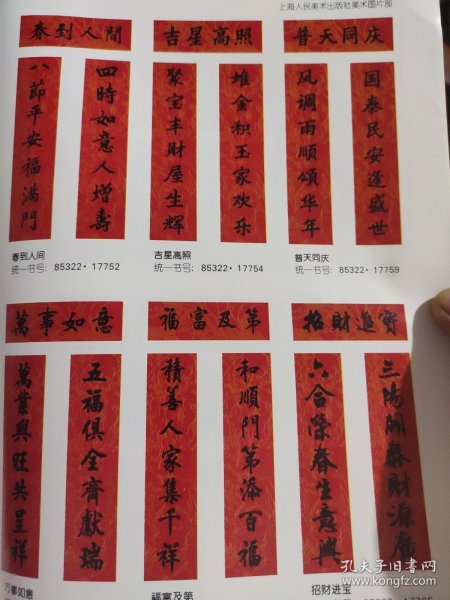 上海人民美术出版社美术图片部
春到人間
吉星高照
普天同庆
四時如意人增壽
八節平安福滿門
堆金积玉家欢乐
聚宝丰财屋生辉
国泰民安逢盛世
风调雨顺颂华年
春到人间
统一书号：85322·17752
吉星高照
统一书号：85322·17754
普天同庆
统一书号：85322·17759
萬事如意
福富及第
招財進寶
五福俱全齊獻瑞
萬業興旺共呈祥
和順門第添百福
積善人家集千祥
三陽開泰財源廣
六合榮春生意興
万事如意
福富及第
招财进宝
孔夫子旧书网